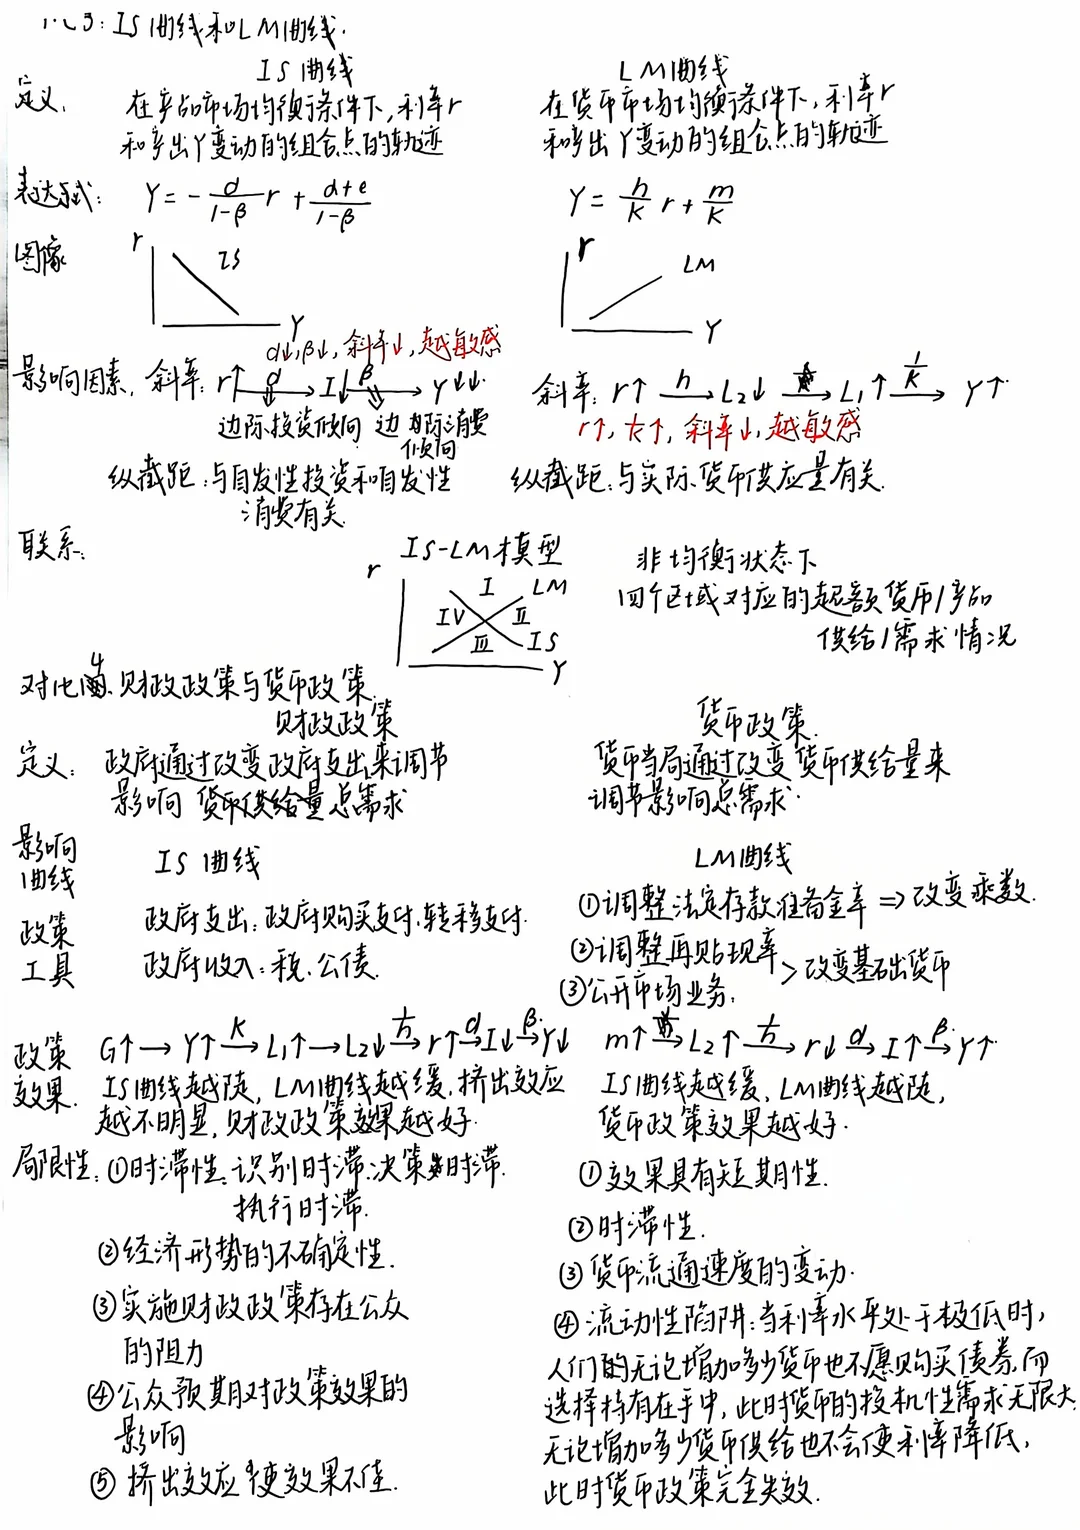 3: IS曲线和LM曲线.
IS曲线 LM曲线
定义. 在产品市场均衡条件下,利率r 在货币市场均衡条件下,利率r
和产出Y变动的组合点的轨迹 和产出Y变动的组合点的轨迹
表达式: Y = -d/(1-β) r + (α+e)/(1-β) Y = h/k r + m/k
图像 r IS Y r LM Y
d↓,β↓,斜率↓,越敏感
影响因素. 斜率: r↑ d→ I↓ β→ Y↓↓. 斜率: r↑ h→ L₂↓ → L₁↑ 1/k→ Y↑.
边际投资倾向 边际消费
倾向
r↑, k↑, 斜率↓,越敏感
纵截距:与自发性投资和自发性 纵截距:与实际货币供应量有关.
消费有关.
联系: IS-LM模型 非均衡状态下
r I LM IV II III IS Y
四个区域对应的超额货币/产品
供给/需求情况
对比4. 财政政策与货币政策.
财政政策 货币政策.
定义: 政府通过改变政府支出来调节 货币当局通过改变货币供给量来
影响 货币供给量总需求 调节影响总需求.
影响
曲线 IS曲线 LM曲线
政策
工具 政府支出:政府购买支付,转移支付. ①调整法定存款准备金率 => 改变乘数.
政府收入:税、公债. ②调整再贴现率
③公开市场业务. > 改变基础货币
政策
效果. G↑ → Y↑ k→ L₁↑ → L₂↓ 1/h→ r↑ d→ I↓ β→ Y↓ m↑ → L₂↑ 1/h→ r↓ d→ I↑ β→ Y↑.
IS曲线越陡, LM曲线越缓,挤出效应 IS曲线越缓, LM曲线越陡,
越不明显,财政政策效果越好. 货币政策效果越好.
局限性: ①时滞性:识别时滞.决策时滞. ①效果具有短期性.
执行时滞. ②时滞性.
②经济形势的不确定性. ③货币流通速度的变动.
③实施财政政策存在公众
的阻力
④公众预期对政策效果的
影响
⑤挤出效应使效果不佳.
④流动性陷阱:当利率水平处于极低时,
人们的无论增加多少货币也不愿购买债券,而
选择持有在手中,此时货币的投机性需求无限大,
无论增加多少货币供给也不会使利率降低,
此时货币政策完全失效.